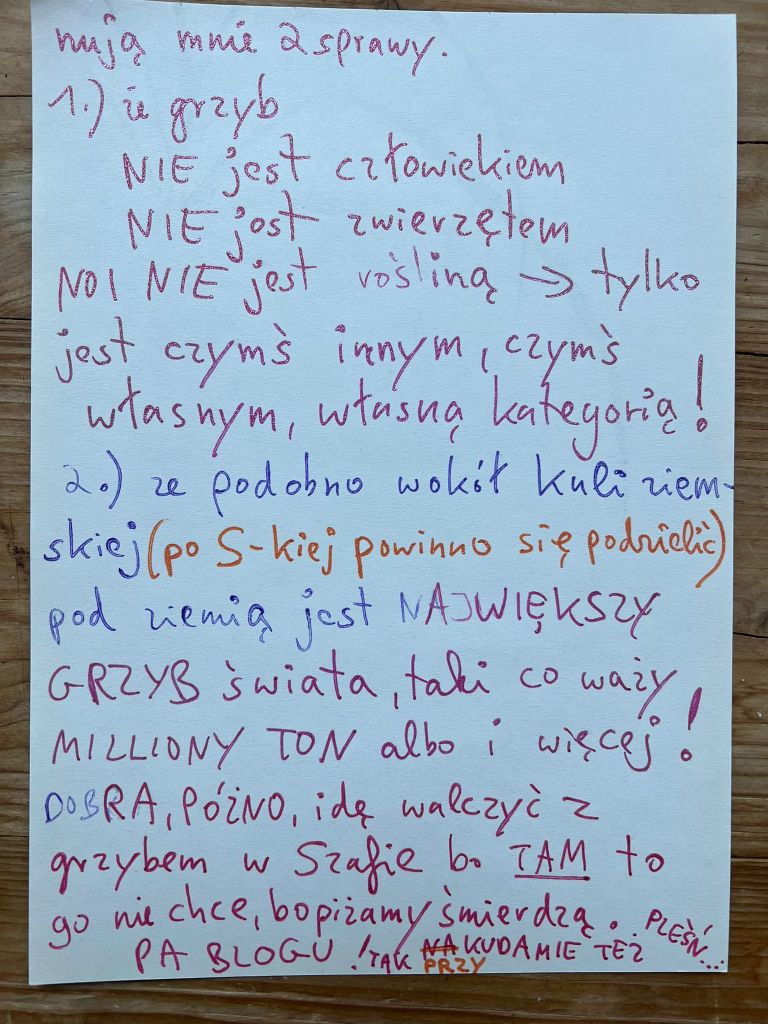 nują mnie 2 sprawy.
1.) że grzyb
NIE jest człowiekiem
NIE jest zwierzętem
NO I NIE jest rośliną → tylko
jest czymś innym, czymś
własnym, własną kategorią!
2.) że podobno wokół kuli ziem-
skiej (po S-kiej powinno się podzielić)
pod ziemią jest NAJWIĘKSZY
GRZYB świata, taki co waży
MILLIONY TON albo i więcej!
DOBRA, PÓŹNO, idę walczyć z
grzybem w Szafie bo TAM to
go nie chce, bo piżamy śmierdzą. PLEŚŃ...
PA BLOGU! TAK NA PRZY KUDAMIE TEŻ